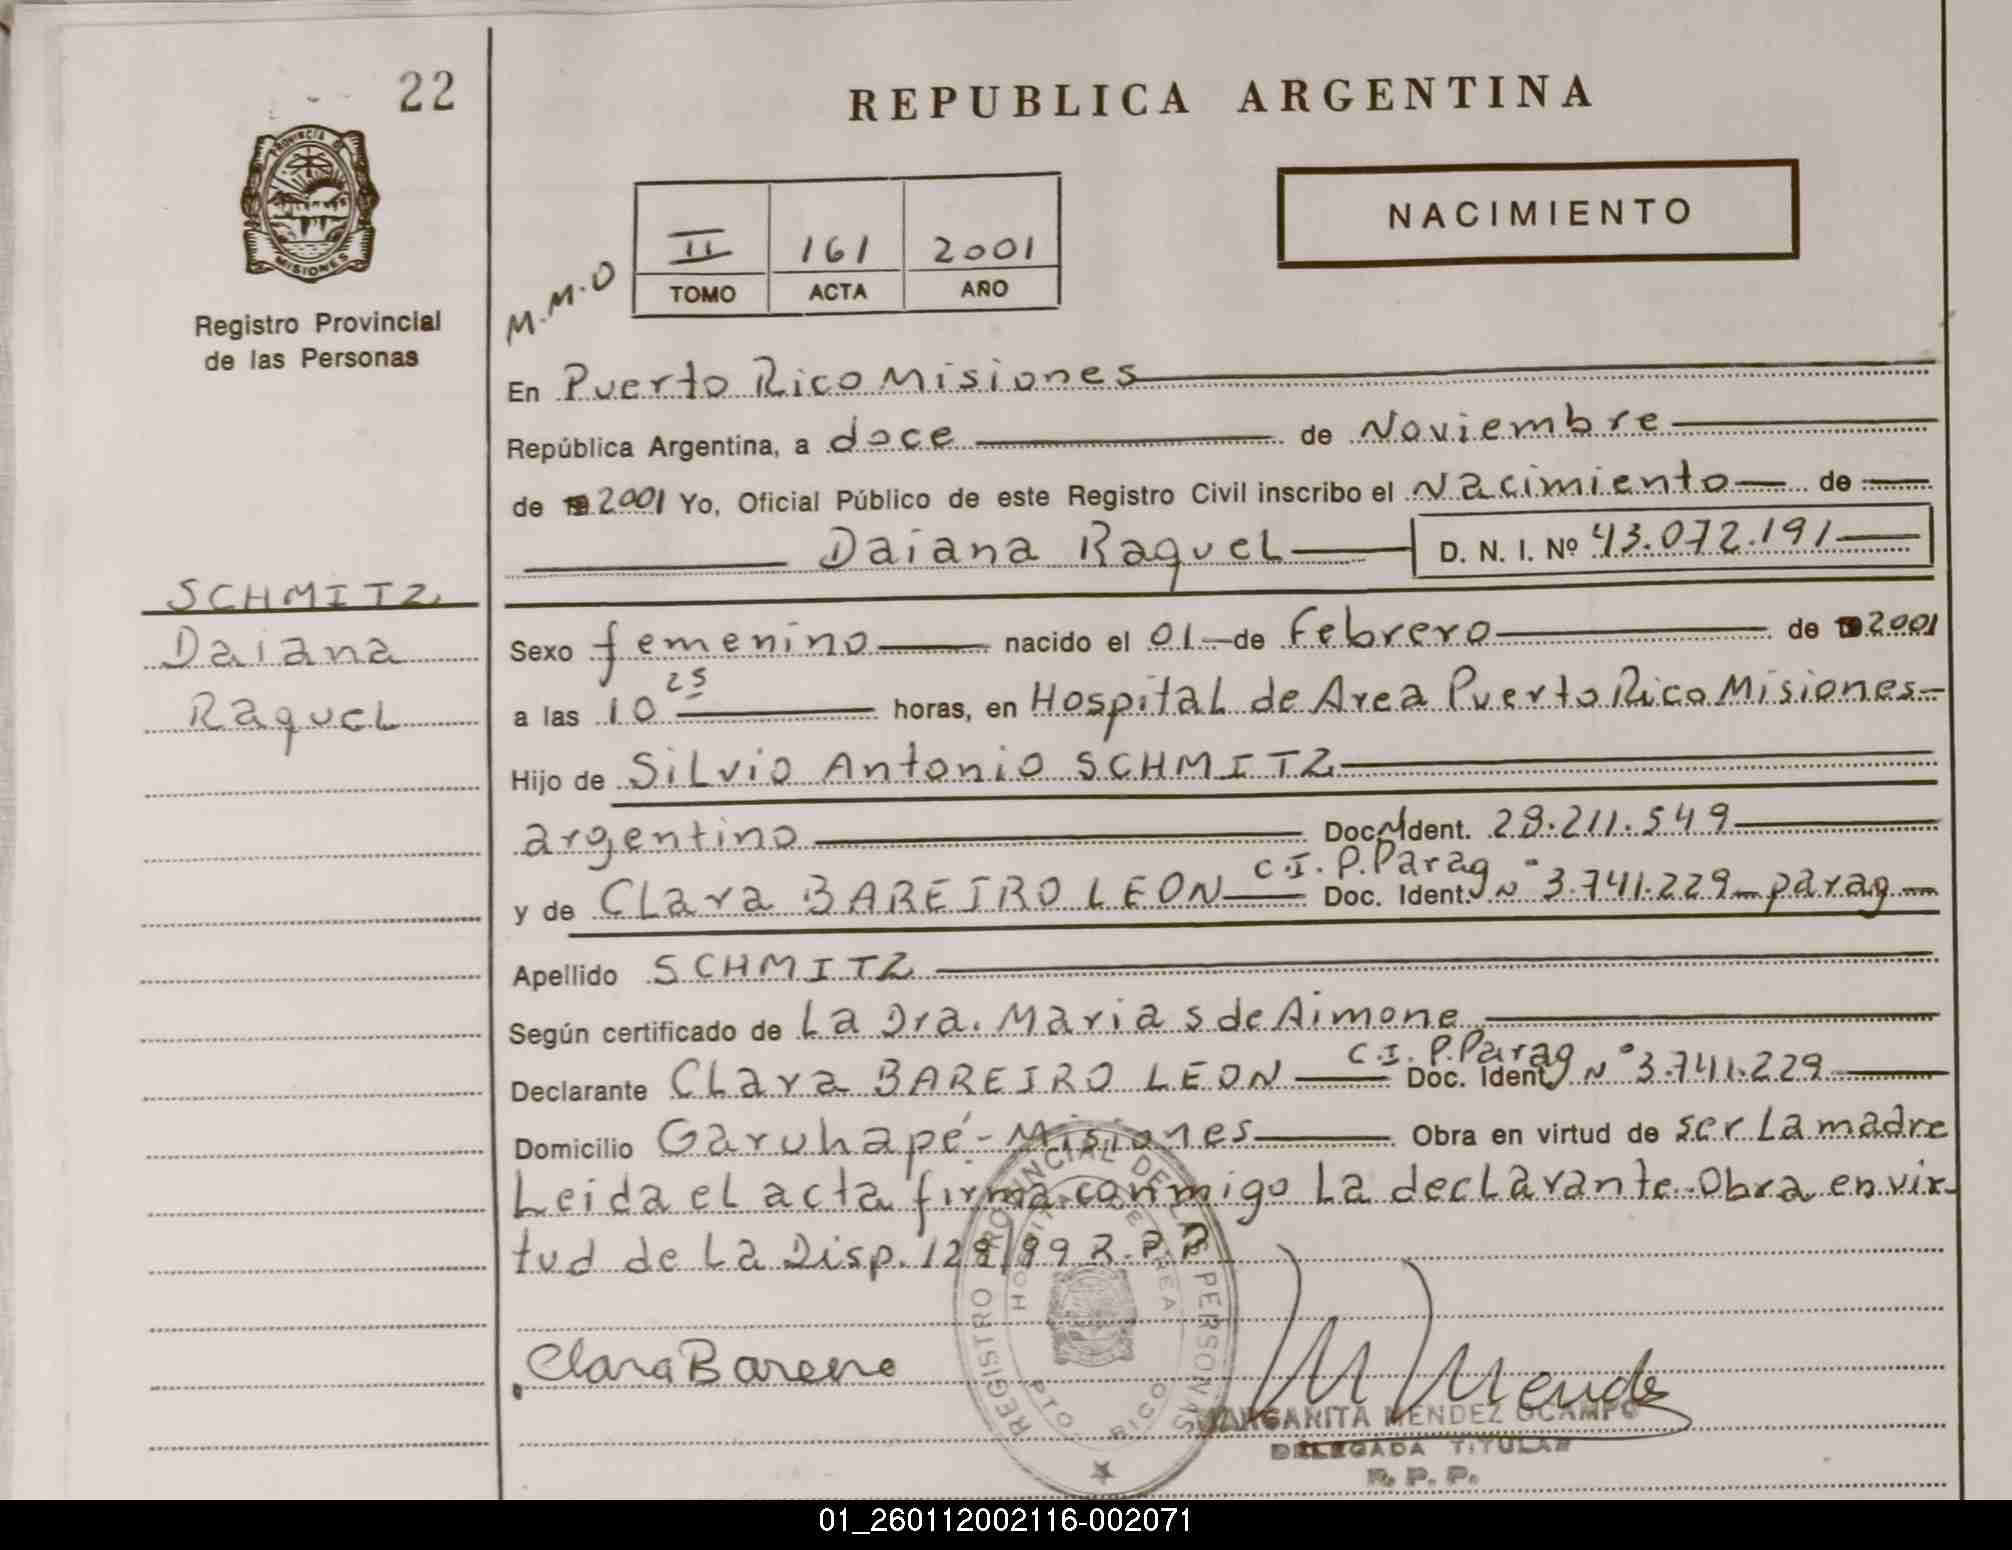 22
REPUBLICA ARGENTINA
PROVINCIA DE
MISIONES
Registro Provincial
de las Personas
NACIMIENTO
II 161 2001
TOMO ACTA AÑO
M.M.O
En Puerto Rico Misiones
República Argentina, a doce de Noviembre
de 19 2001 Yo, Oficial Público de este Registro Civil inscribo el Nacimiento de
Daiana Raquel D. N. I. Nº 43.072.191
SCHMITZ
Daiana
Raquel
Sexo femenino nacido el 01 de Febrero de 19 2001
a las 10 25 horas, en Hospital de Area Puerto Rico Misiones
Hijo de Silvio Antonio SCHMITZ
argentino Doc. Ident. 28.211.549
y de Clara BAREIRO LEON C.I.P.Parag Doc. Ident. Nº 3.741.229 parag
Apellido SCHMITZ
Según certificado de La Dra. Maria S de Aimone
Declarante Clara BAREIRO LEON C.I.P.Parag Doc. Ident. Nº 3.741.229
Domicilio Garuhapé - Misiones Obra en virtud de ser La madre
Leida el acta firma conmigo La declarante. Obra en vir-
tud de La Disp. 128/99 R.P.P
REGISTRO PROVINCIAL DE LAS PERSONAS
HOSPITAL DE AREA
PTO RICO
Clara Bareiro
M Mendez
MARGARITA MENDEZ OCAMPO
DELEGADA TITULAR
R. P. P.
01_260112002116-002071